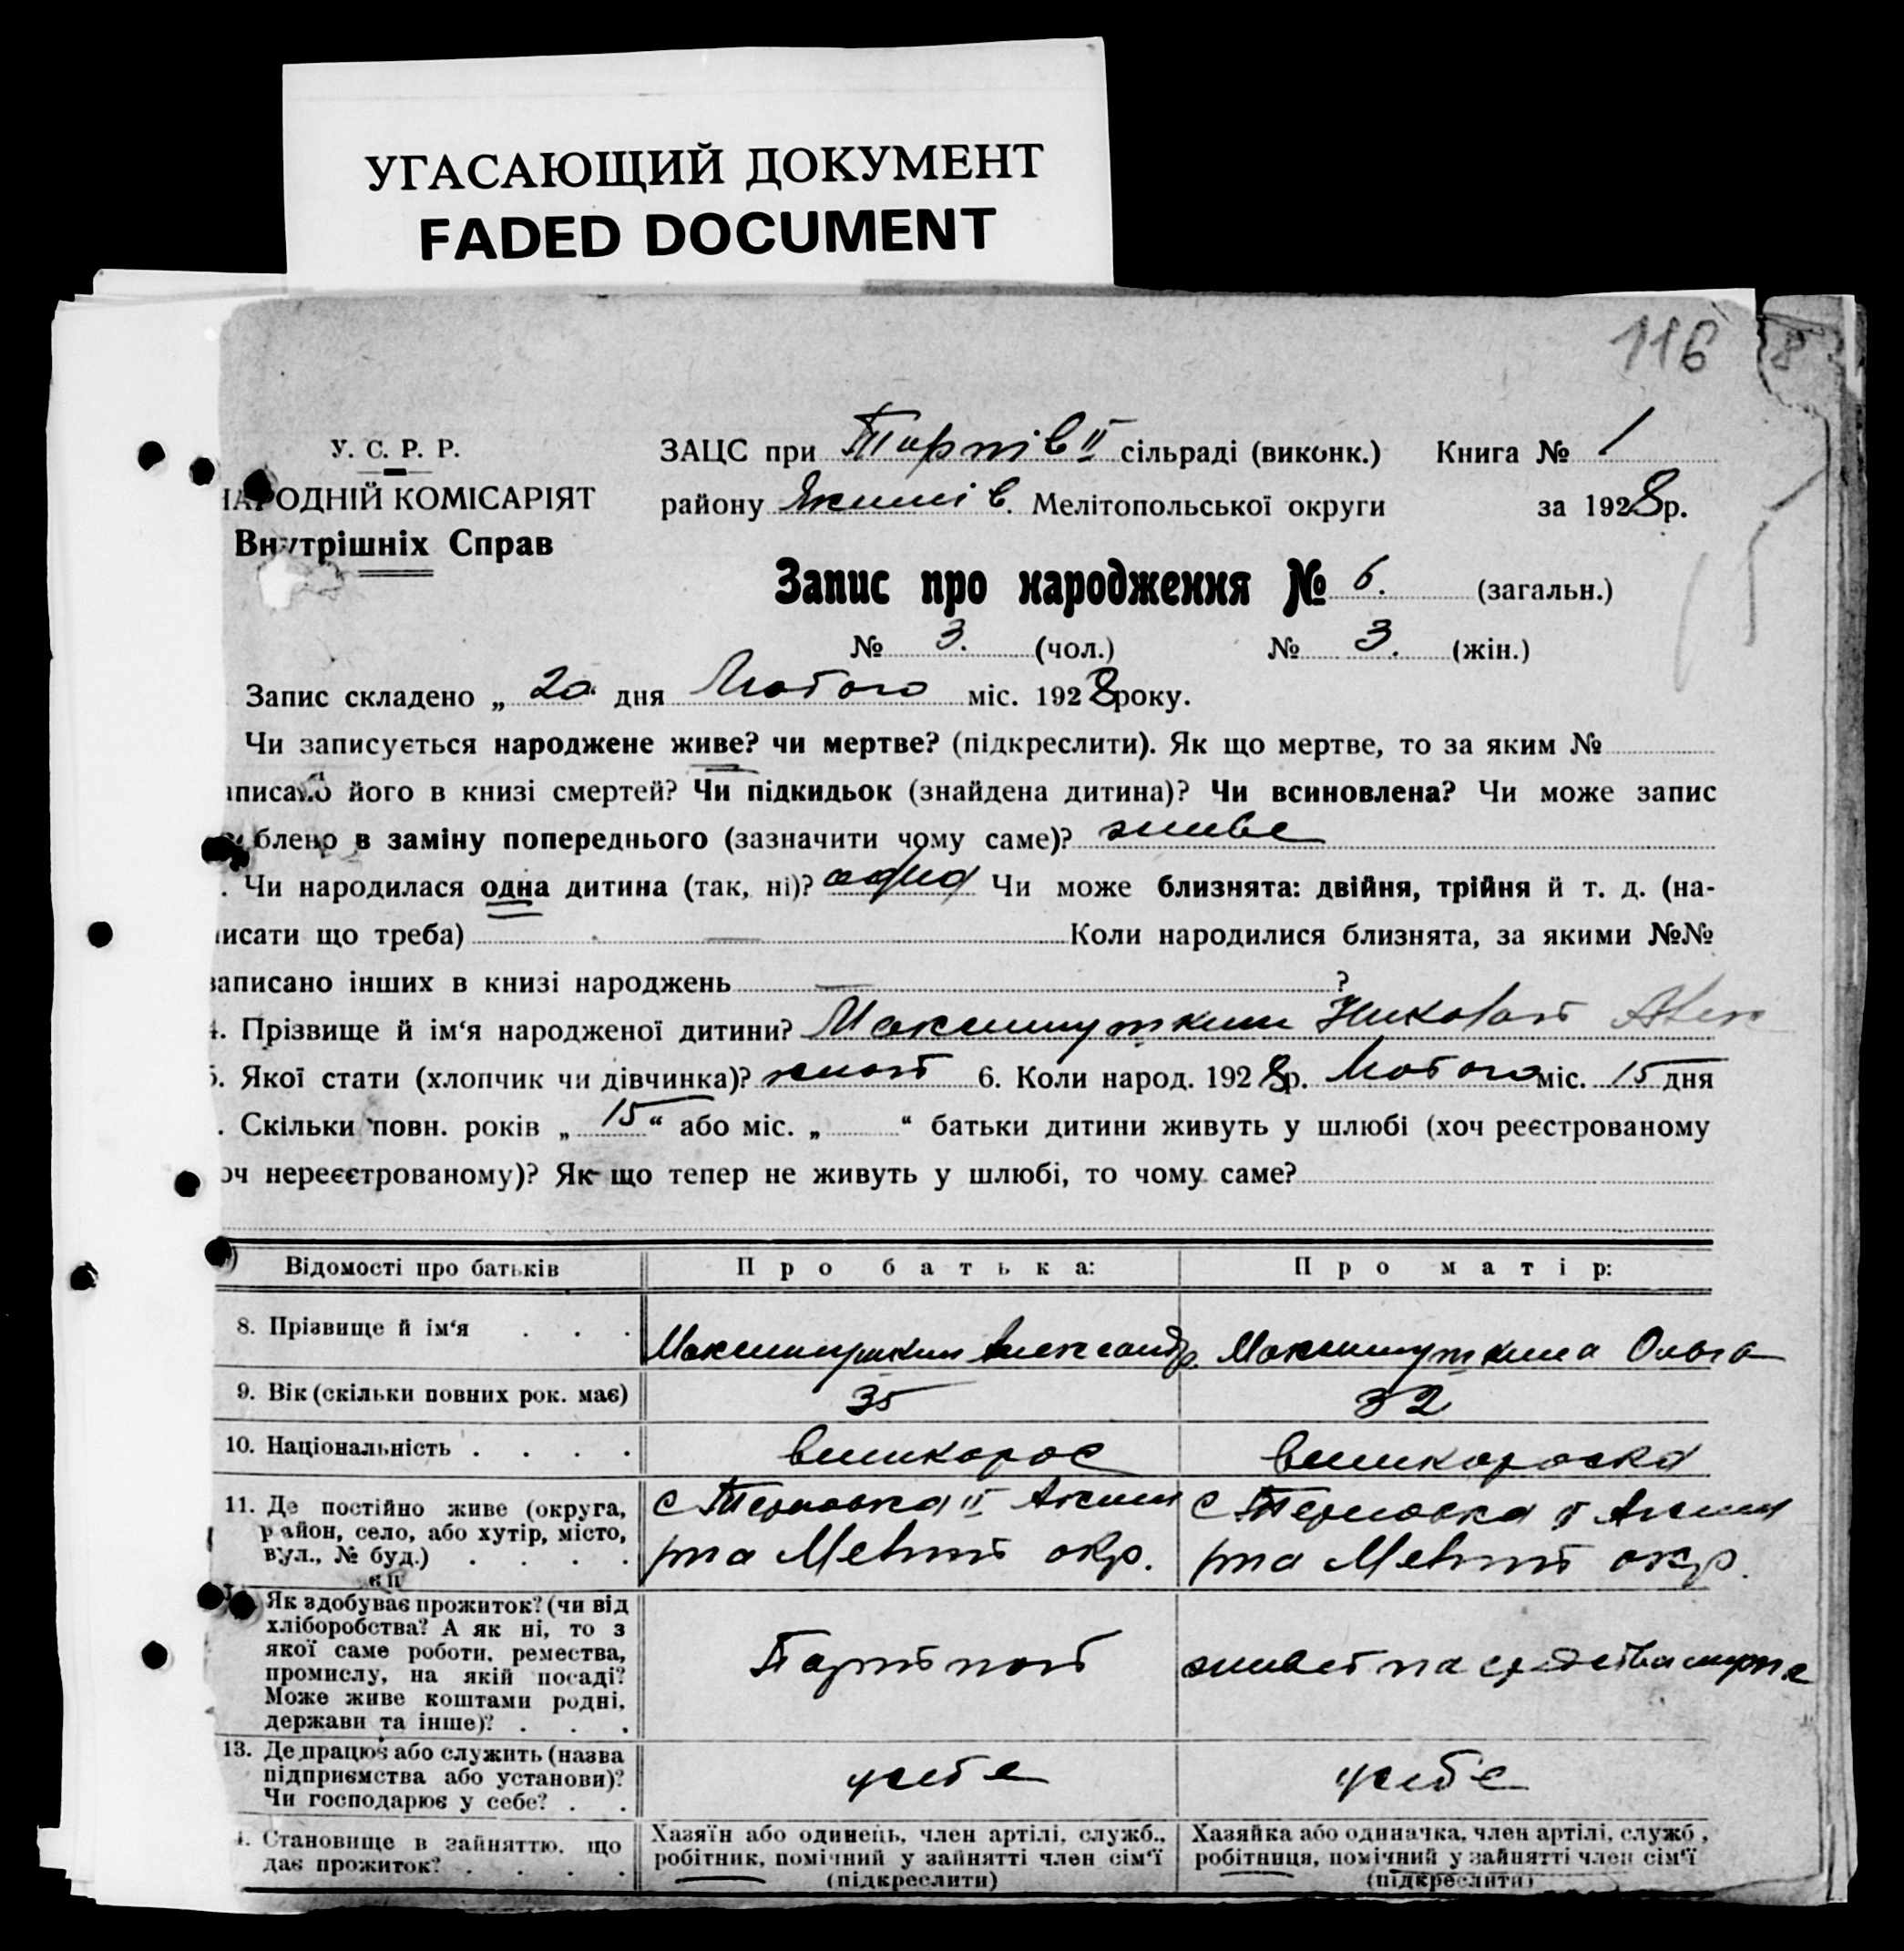 УГАСАЮЩИЙ ДОКУМЕНТ
FADED DOCUMENT
116
8
У. С. Р. Р.
НАРОДНІЙ КОМІСАРІЯТ
Внутрішніх Справ
ЗАЦС при II сільраді (виконк.) Книга № 1
району Якимів. Мелітопольської округи за 1928 р.
Запис про народження № 6. (загальн.)
№ 3. (чол.) № 3. (жін.)
Запис складено „ 20 дня Лютого міс. 1928 року.
Чи записується народжене живе? чи мертве? (підкреслити). Як що мертве, то за яким №
аписано його в книзі смертей? Чи підкидьок (знайдена дитина)? Чи всиновлена? Чи може запис
блено в заміну попереднього (зазначити чому саме)? живе
. Чи народилася одна дитина (так, ні)? одна Чи може близнята: двійня, трійня й т. д. (на-
исати що треба) — Коли народилися близнята, за якими №№
записано інших в книзі народжень — ?
4. Прізвище й ім‘я народженої дитини? Максимушкин Николай Алек
5. Якої стати (хлопчик чи дівчинка)? 6. Коли народ. 1928 р. Лютого міс. 15 дня
. Скільки повн. років „ 15 “ або міс. „ “ батьки дитини живуть у шлюбі (хоч реєстрованому
оч нереєстрованому)? Як що тепер не живуть у шлюбі, то чому саме?
Відомості про батьків Про батька: Про матір:
8. Прізвище й ім‘я . . . Максимушкин Александр. Максимушкина Ольга
9. Вік (скільки повних рок. має) 35 32
10. Національність . . . . великорос великороска
11. Де постійно живе (округа, с Терновка II Аким с Терновка II Аким
район, село, або хутір, місто,
вул., № буд.) . . . . р на Мелит окр. р на Мелит окр.
Як здобуває прожиток? (чи від
хліборобства? А як ні, то з
якої саме роботи, ремества,
промислу, на якій посаді? Портной живет на средства мужа
Може живе коштами родні,
держави та інше)? . . .
13. Де працює або служить (назва
підприємства або установи)? у себе у себе
Чи господарює у себе? . .
4. Становище в зайняттю, що Хазяїн або одинець, член артілі, служб., Хазяйка або одиначка, член артілі, служб.,
дає прожиток? . . . . робітник, помічний у зайнятті член сім‘ї робітниця, помічний у зайнятті член сім‘ї
(підкреслити) (підкреслити)